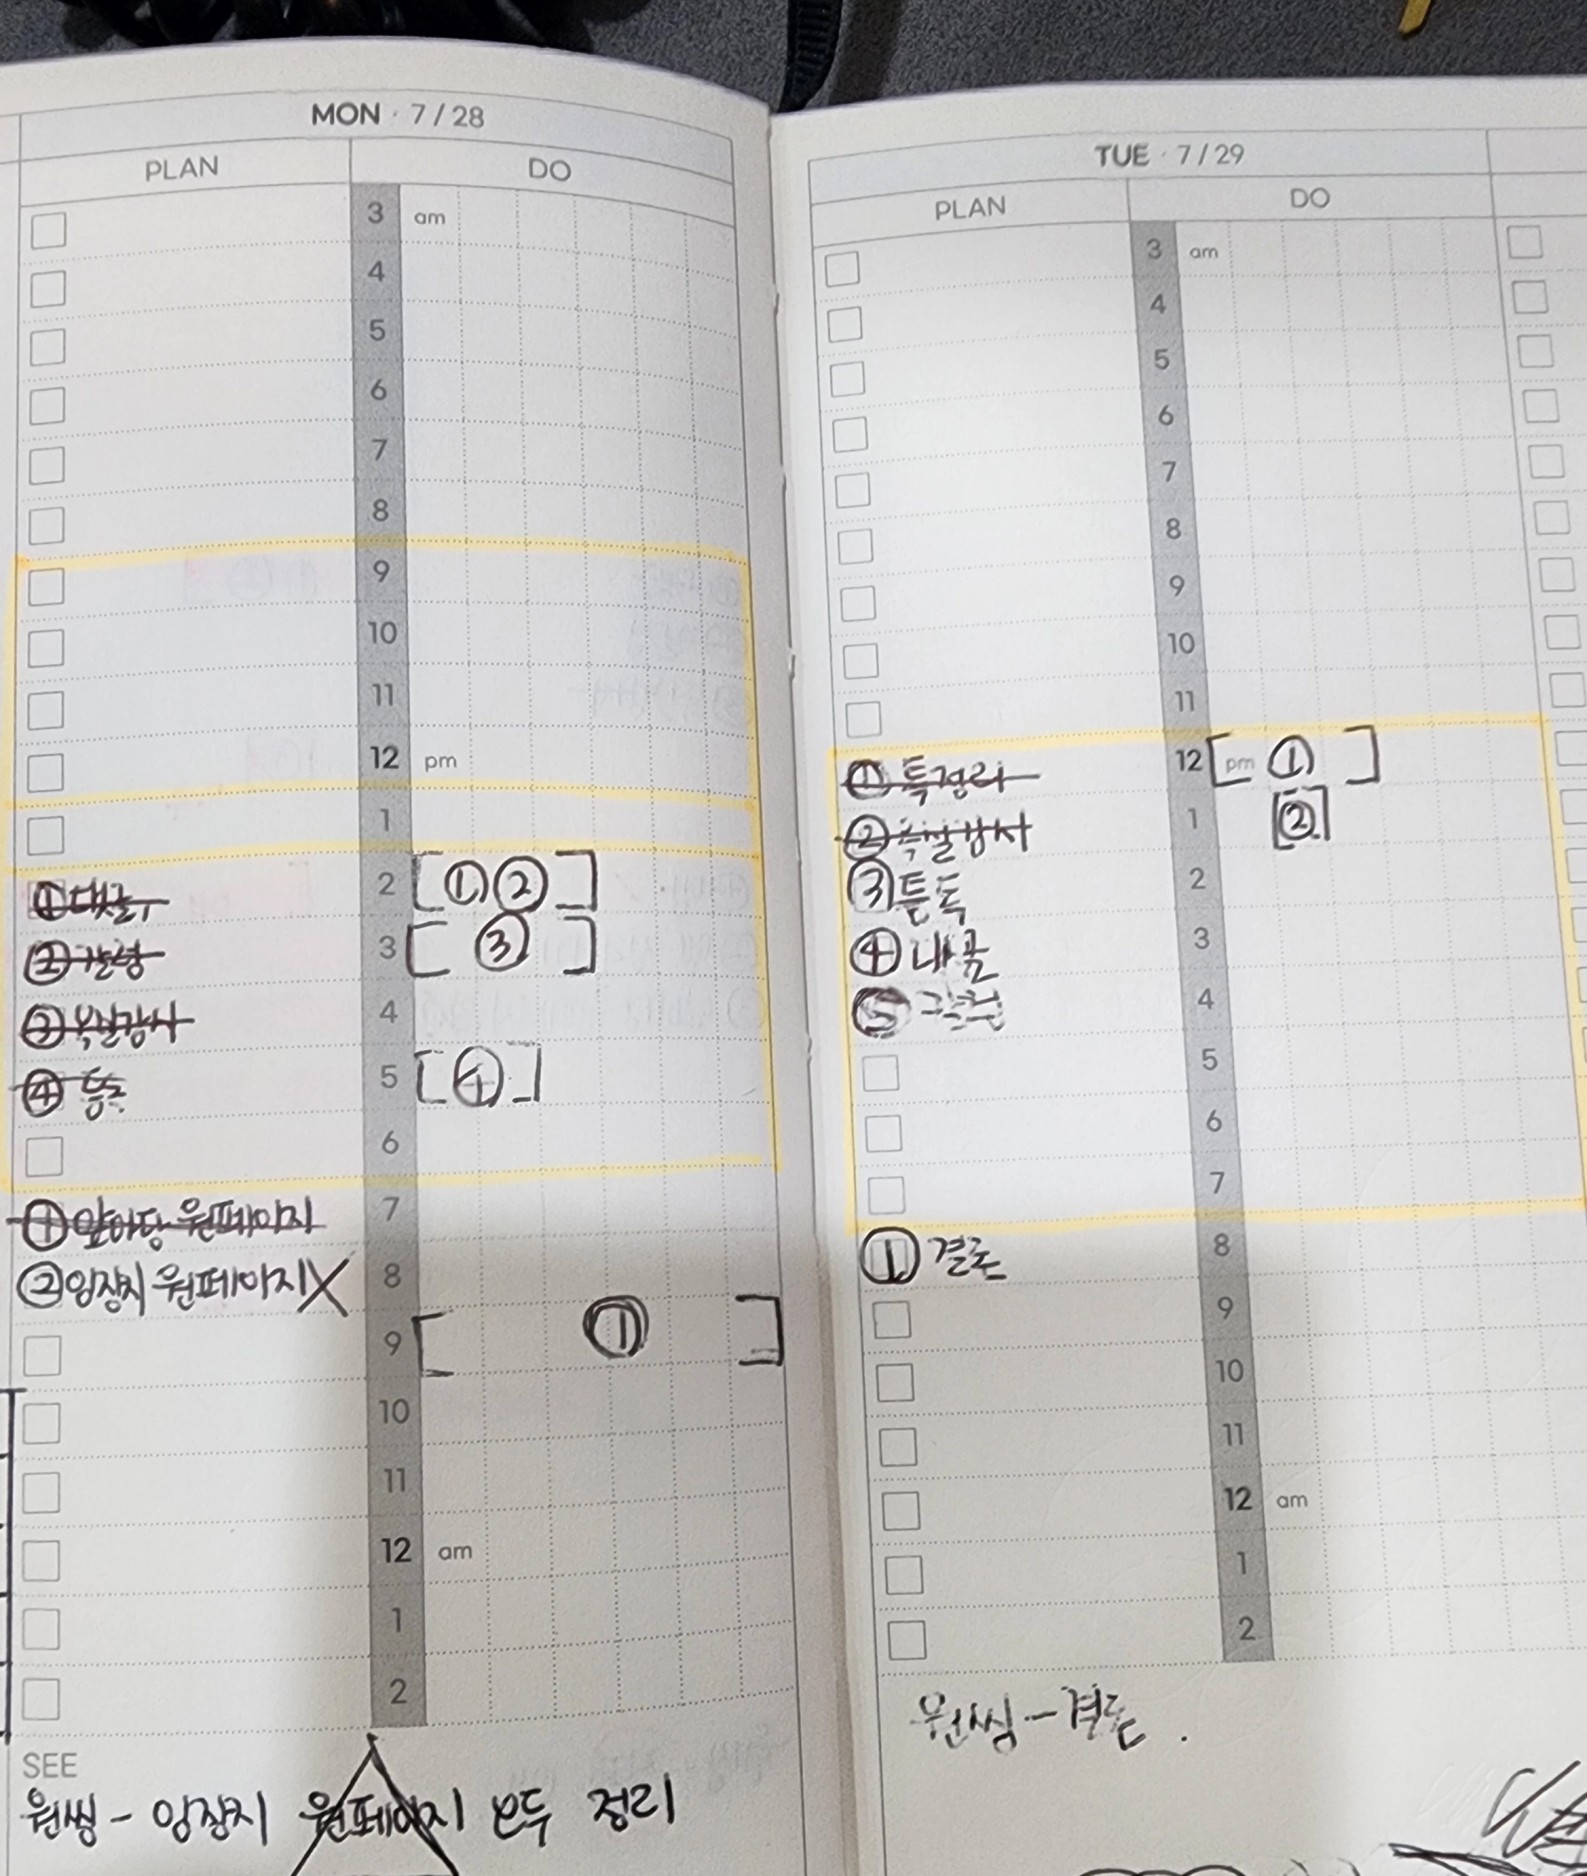 MON · 7 / 28
PLAN
DO
3 am
4
5
6
7
8
9
10
11
12 pm
1
① 댓글
2 [ ① ② ]
②
3 [ ③ ]
③ 목실감사
4
④
5 [ ④ ]
6
① 앞마당 원페이지
7
② 임장지 원페이지 X
8
9 [ ① ]
10
11
12 am
1
2
SEE
원씽 - 임장지 원페이지 모두 정리
TUE · 7 / 29
PLAN
DO
3 am
4
5
6
7
8
9
10
11
① 특정리
12 [ pm ① ]
② 목실감사
1 [ ② ]
③ 튼톡
2
④
3
⑤
4
5
6
7
① 결론
8
9
10
11
12 am
1
2
원씽 - 결론.